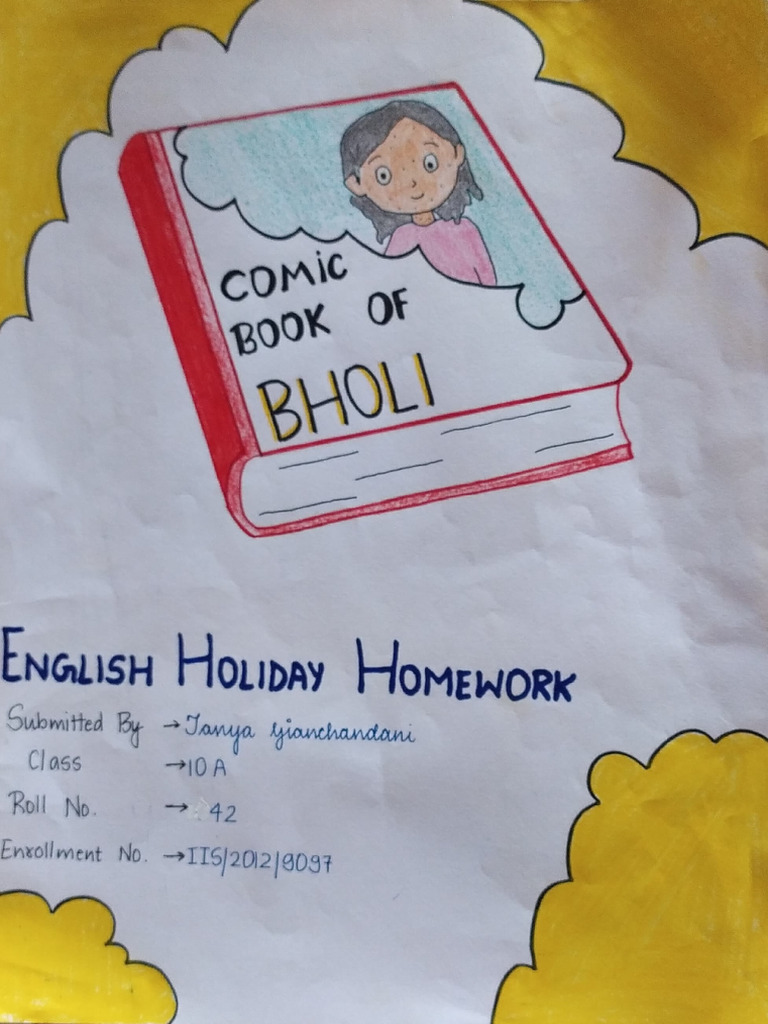 COMIC
BOOK OF
BHOLI
ENGLISH HOLIDAY HOMEWORK
Submitted By → Tanya Gianchandani
Class → 10 A
Roll No. → 42
Enrollment No. → IIS/2012/9097